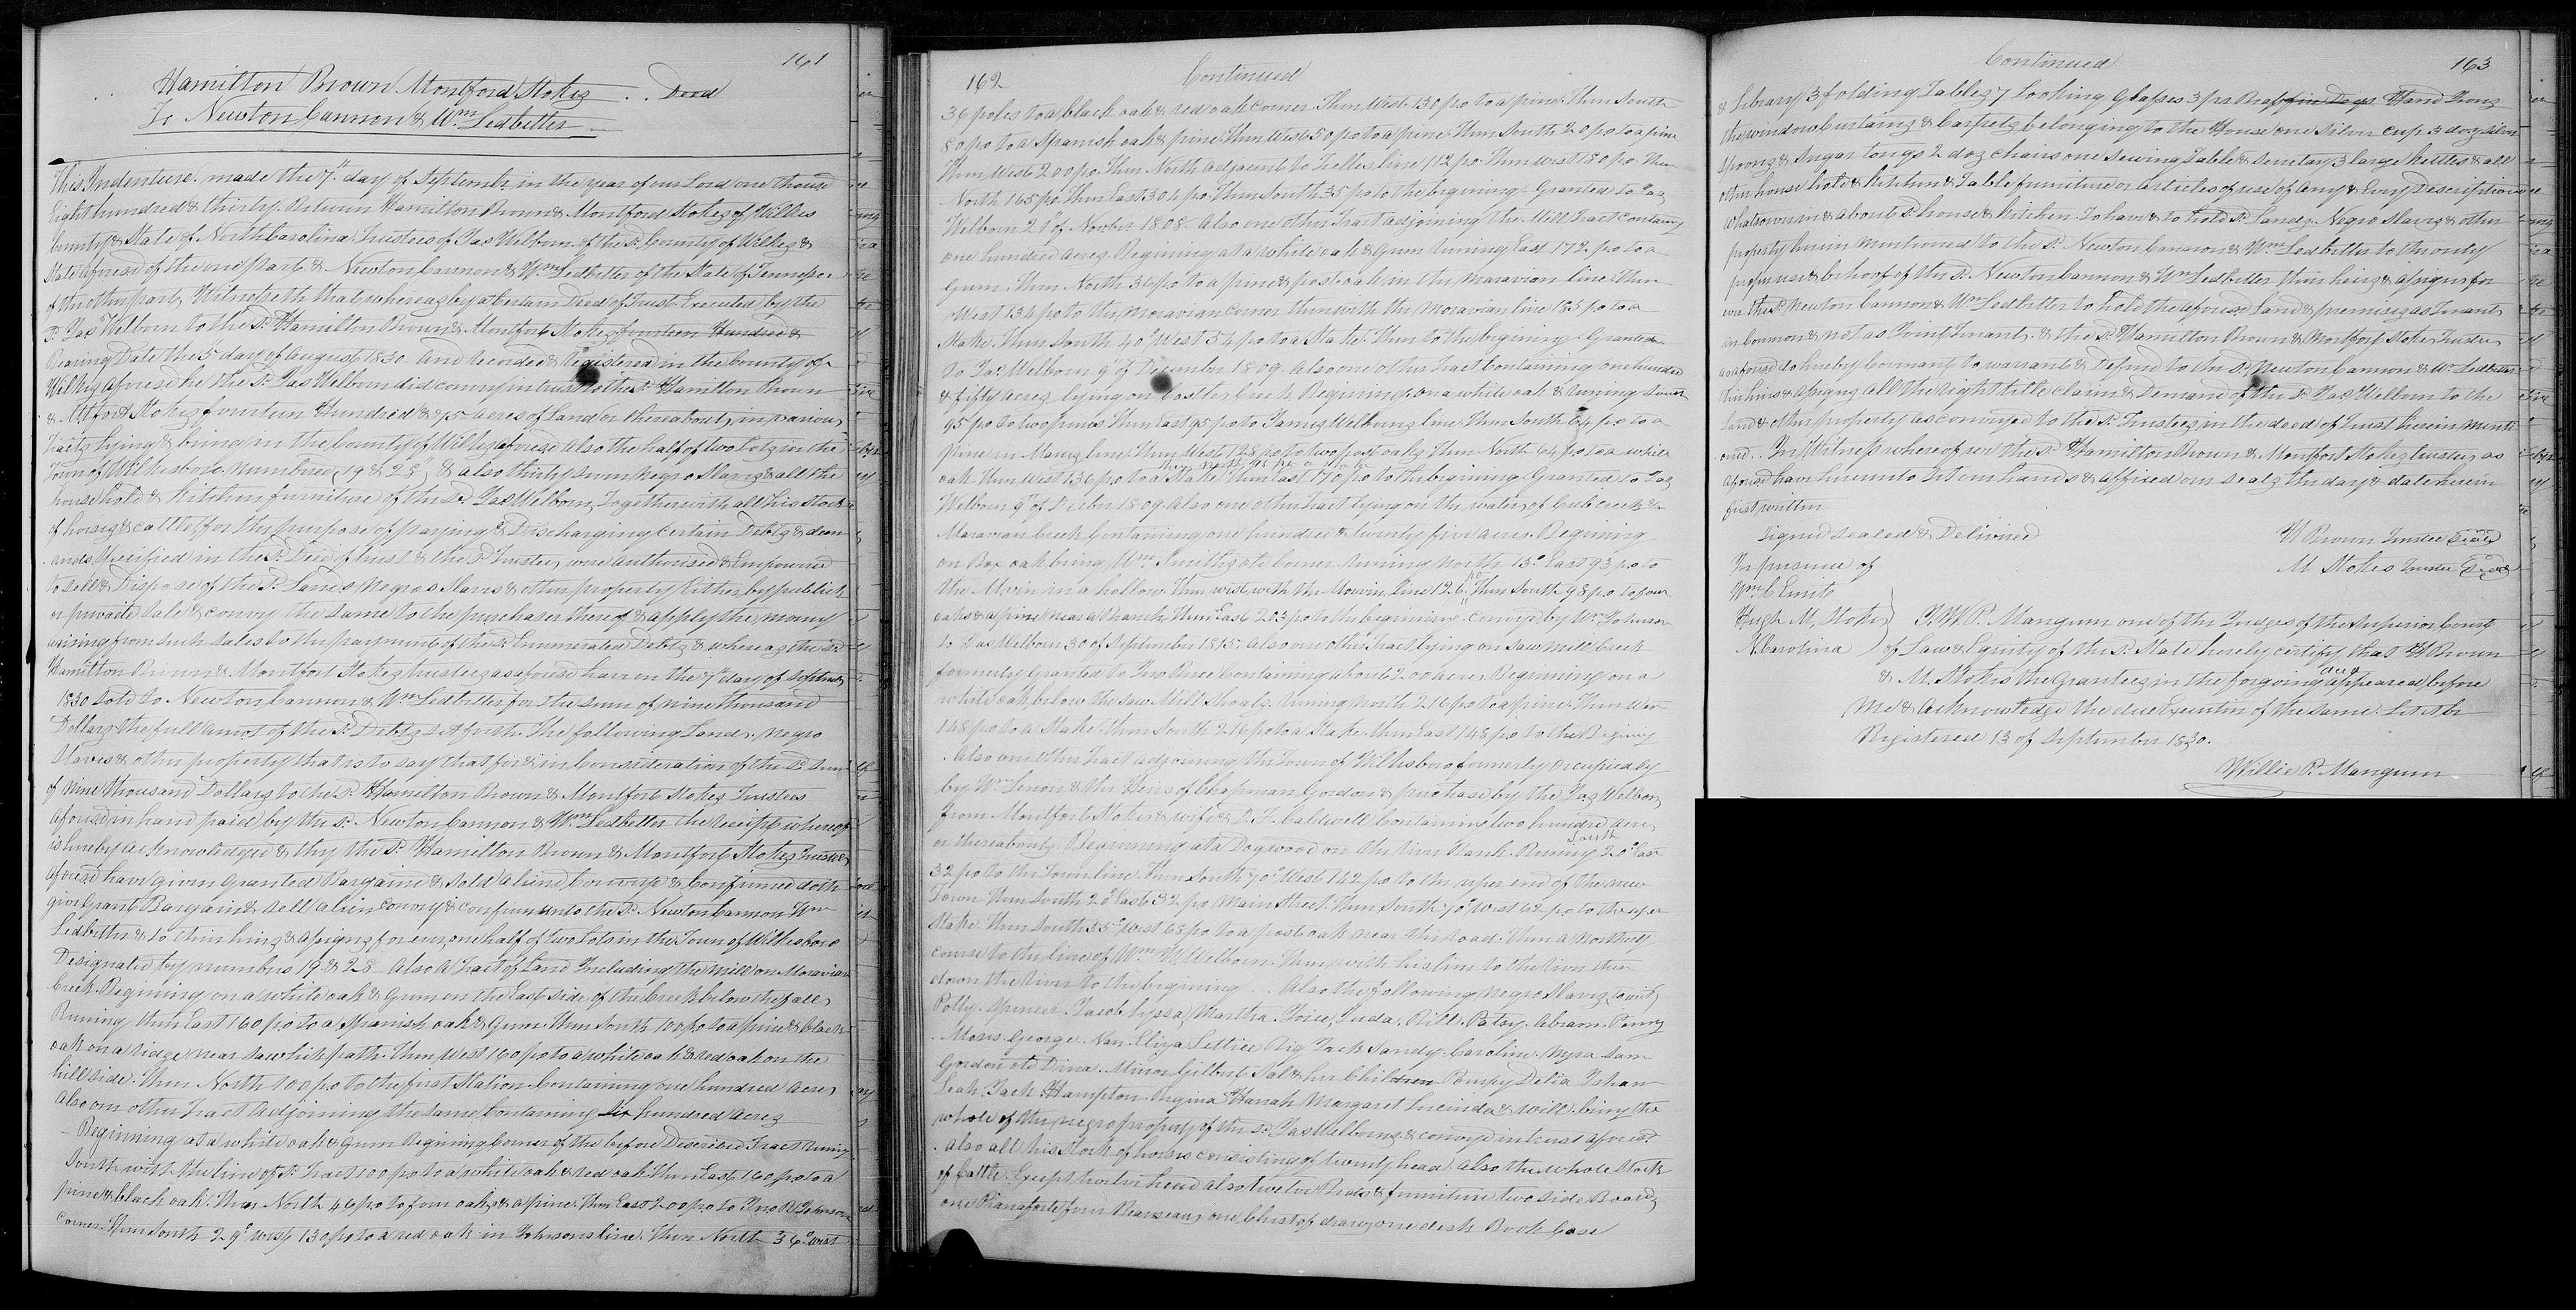 161
Hamilton Brown Montford Stokes . . Deed
To Newton Cannon & Wm Ledbetter
This Indenture made the 7th day of September in the year of our Lord one thous
Eight hundred & thirty. Between Hamilton Brown & Montford Stokes of Wilkes
County & State of North Carolina Trustees of Jas Welborn of the sd County of Wilkes &
State aforesd of the one part & Newton Cannon & Wm Ledbetter of the State of Tennessee
of the other part, Witnesseth that whereas by a Certain Deed of Trust Executed by the
sd Jas Welborn to the sd Hamilton Brown & Montfort Stokes fourteen Hundred &
Bearing Date the 5 day of August 1830 and Recorded & Registered in the County of
Wilkes aforesd he the sd Jas Welborn did convey in trust to the sd Hamilton Brown
& Mtfort Stokes fourteen Hundred & 75 acres of Land or thereabouts in various
Tracts lying & being in the County of Wilkes aforesd also the half of two Lots in the
Town of Wilkesboro numbered (19 & 28) & also thirty seven Negro Slaves & all the
house hold & kitchen furniture of the sd Jas Welborn Together with all his stock
of horses & cattle, for the purpose of paying & Discharging certain Debts & dem
ands specified in the sd Deed of trust & the sd Trustees were authorised & Empowered
to sell & Dispose of the sd Lands Negroes Slaves & other property Either by publick
or private sale & convey the same to the purchaser thereof & apply the money
arising from such sales to the payment of the sd Enumerated Debts & whereas the sd
Hamilton Brown & Montfort Stokes trustees as aforesd have on the 7th day of Septem
1830 sold to Newton Cannon & Wm Ledbetter for the sum of nine thousand
Dollars the full amot of the sd Debts set forth. The following Lands, negro
Slaves & other property that is to say that for & in Consideration of the sd sum
of nine thousand Dollars to the sd Hamilton Brown & Montfort Stokes Trustees
aforesd in hand paid by the sd Newton Cannon & Wm Ledbetter the receipt whereof
is hereby acknowledged & they the sd Hamilton Brown & Montfort Stokes Trustees
aforesd have given Granted Bargained & sold aliend Conveyd & Confirmed doth
give Grant Bargain & sell alien convey & confirm unto the sd Newton Cannon Wm
Ledbetter & to their heirs & assigns forever, one half of two Lots in the Town of Wilkesboro
Designated by numbers 19 & 28 Also A Tract of Land Including the mill on Moravian
Creek Begining on a white oak & Gum on the East side of the Creek below the falls
Runing then East 160 po to a Spanish oak & Gum. Then South 100 po to a pine & black
oak on a ridge near path. Then West 160 po to a white oak & red oak on the
hill side. Then North 100 po to the first Station Containing one hundred acres
Also one other Tract Adjoining the same Containing six hundred acres
Beginning at a white oak & Gum Begining Corner of the before Described Tract runing
South with the line of sd Tract 100 po to a white oak & red oak Then East 160 po to a
pine & black oak. Then North 46 po to four oaks & a pine. Then East 200 po to Jno R Johnson
corner. Then South 29° West 130 po to a red oak in Johnsons line. Then North 36° West
162
Continued
36 poles to a black oak & red oak corner. Then West 130 po to a pine. Then South
80 po to a Spanish oak & pine. Then West 50 po to a pine Then South 20 po to a pine
Then West 200 po Then North adjacent to line 112 po Then West 180 po. Then
North 165 po. Then East 304 po. Then South 35 po to the begining Granted to Jas
Welborn 21st of Novbr 1808. Also one other Tract adjoining the Mill Tract Contain
one hundred acres. Begining at a white oak & Gum runing East 172 po to a
Gum. Then North 36 po to a pine & post oak in the Moravian line Then
West 134 po to the Moravian corner then with the Moravian line 185 po to a
Stake. Then South 40° West 54 po to a Stake. Then to the begining Granted
To Jas Welborn 9th of December 1809. Also one other Tract Containing one hundred
& fifty acres lying on creek. Begining on a white oak & runing South
95 po to two pines Then East 95 po to James Welborns line Then South 64 po to a
pine in line. Then West 128 po to two post oaks, Then North 64 po to a white
then north 95 po a stake
oak. Then West 136 po to a Stake Then East 170 po to the begining Granted to Jas
Welborn 9th of Decbr 1809. Also one other Tract lying on the waters of Cub creek &
Moravian Creek Containing one hundred & twenty five acres. Begining
on Box oak being Wm Smiths old corner runing North 13° East 93 po to
the in a hollow Then west with the line 126 po Then South 98 po to four
oaks & a pine near a Branch. Then East 203 po to the begining conveyd by Wm Johnson
to Jas Welborn 30 of September 1815. Also one other Tract lying on Saw mill Creek
formerly Granted to Jno Containing about 200 acres Beginning on a
white oak below the Saw Mill Shoals, runing North 216 po to a pine. Then West
148 po to a Stake. then South 216 po to a Stake then East 148 po to the Begining
Also one other Tract adjoining the Town of Wilkesboro formerly occupied by
by Wm Lenoir & the Heirs of Chapman Gordon & purchased by the Jas Welborn
from Montfort Stokes & wife & D. F. Caldwell Containing two hundred acres
South
or thereabouts Beginning at a Dogwood on the river Bank. Runing 20° East
32 po to the Town line. Then South 70° West 142 po to the uper end of the new
Town then South 20° East 32 po Main Street. Then South 70° West 62 po to the uper
Stake. Then South 35° West 68 po to a post oak near the Road. Then a Northerly
course to the line of Wm W Welborn. Then with his line to the river then
down the river to the begining . . Also the following negro Slaves (to wit)
Polly. Spencer. Jacob Lyssa, Martha. Joice, Juda. Bill. Patsy. Abram. Penny
Moses. George. Nan. Eliza Lettice Big Jack Sandy. Caroline. Myra Sam
Gordon old Dina. Minor Gilbert Sal & her Children Pompy Delia Isham
Leah. Jack. Hampton. Regina Hanah Margaret Lucinda & will. being the
whole of the negro property of the sd Jas Welborns & conveyd in trust aforesd
Also all his Stock of horses consisting of twenty head. Also the whole Stock
of Cattle. Except twelve head also twelve Beds & furniture two side Boards
one Pianaforte four Beaureaus, one Chest of draws, one desk Book Case
Continued
163
& Library 3 folding Tables, 7 Looking Glasses 3 prs Brass fire Dogs Hand Irons
the window Curtains & Carpets belonging to the House one Silver cup 3 doz Silver
Spoons & Sugar tongs 2 doz chairs one Sewing Table & Secretary 3 large kettles & all
other house hold & Kitchen & Table furniture or articles of use of any & Every Description
whatsoever in & about sd house & kitchen. To have & to hold sd Lands. Negro Slaves & other
property herein mentioned to the sd Newton Cannon & Wm Ledbetter to the only
proper use & behoof of the sd Newton Cannon & Wm Ledbetter their heirs & assigns for
ever the sd Newton Cannon & Wm Ledbetter to hold the aforesd Land & premises as Tenants
in common & not as Joint Tenants. & the sd Hamilton Brown & Montfort Stokes Trustees
as aforesd do hereby Covenant to warrant & Defend to the sd Newton Cannon & Wm Ledbetter
their heirs & assigns all the right title claim & Demand of the sd Jas Welborn to the
land & other property as conveyed to the sd Trustees in the deed of trust herein menti
oned. In Witness whereof we the sd Hamilton Brown & Montfort Stokes trustees as
aforesd have hereunto set our hands & affixed our seals the day & date herein
first written
Signed Sealed & Delivered
H Brown Trustee Seal
In presence of
M Stokes Trustee Seal
Wm C Emit
Hugh M. Stokes
N. Carolina
I, W. P. Mangum one of the Judges of the Superior Court
of Law & Equity of the sd State hereby certify that H Brown
deed
& M. Stokes the Grantees in the forgoing appeared before
me & acknowledge the due Execution of the same. Let it be
Registered 13 of September 1830.
Willie P. Mangum